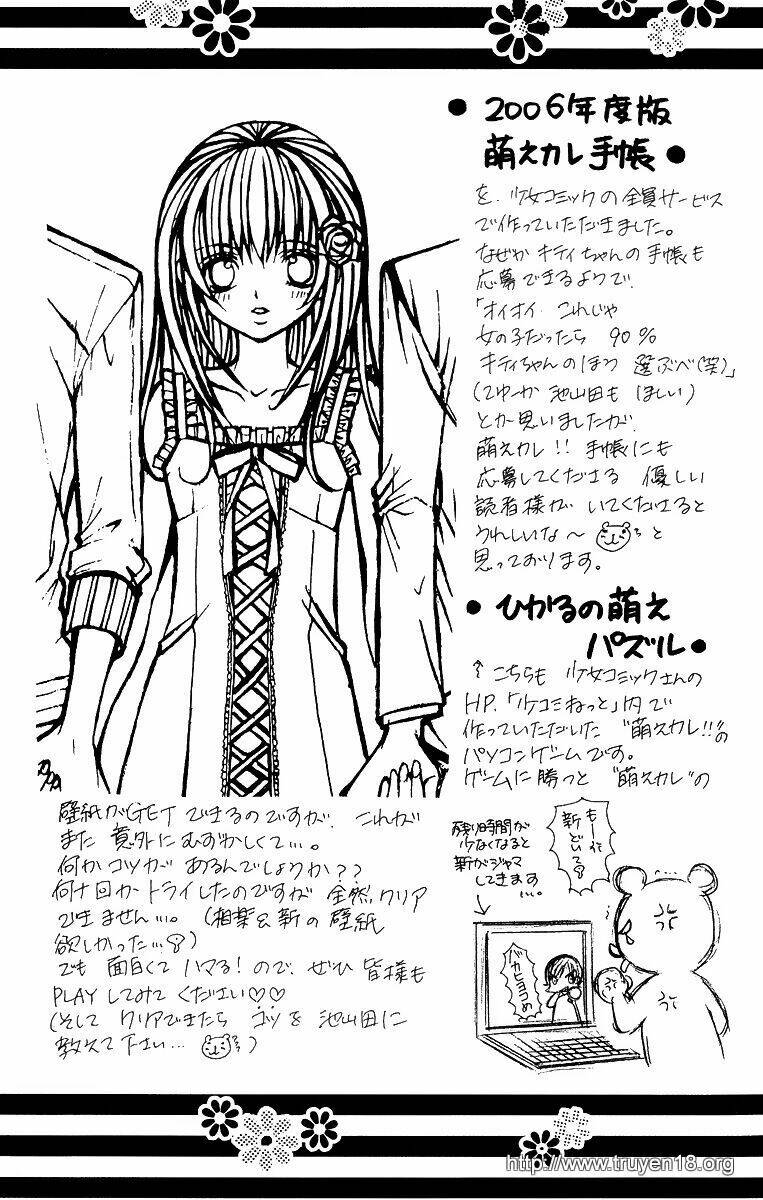 ● 2006年度版
萌えカレ手帳 ●
を、少女コミックの全員サービス
で作っていただきました。
なぜか キティちゃんの手帳も
応募できるようで、
「オイオイ これじゃ
女の子だったら 90%
キティちゃんのほう 選ぶべ(笑)」
(てゆーか 池山田も ほしい)
とか思いましたが、
萌えカレ!! 手帳にも
応募してくださる 優しい
読者様が いてくださると
うれしいな〜 と
思っております。
● ひかるの萌え
パズル ●
↑こちらも 少女コミックさんの
HP、「少コミねっと」内で
作っていただいた "萌えカレ!!"の
パソコンゲームです。
ゲームに勝つと "萌えカレ"の
壁紙がGETできるのですが、これが
また 意外にむずかしくて…。
何かコツが あるんでしょうか??
何十回かトライしたのですが 全然クリア
できません…。(相葉&新の壁紙
欲しかった…)
でも 面白くて ハマる!ので、ぜひ 皆様も
PLAYしてみてください♡♡
(そして クリアできたら コツを 池山田に
教えて下さい… )
残り時間が
少なくなると
新がジャマ
してきます
…。
もーっ
新
どいて
http://www.truyen18.org